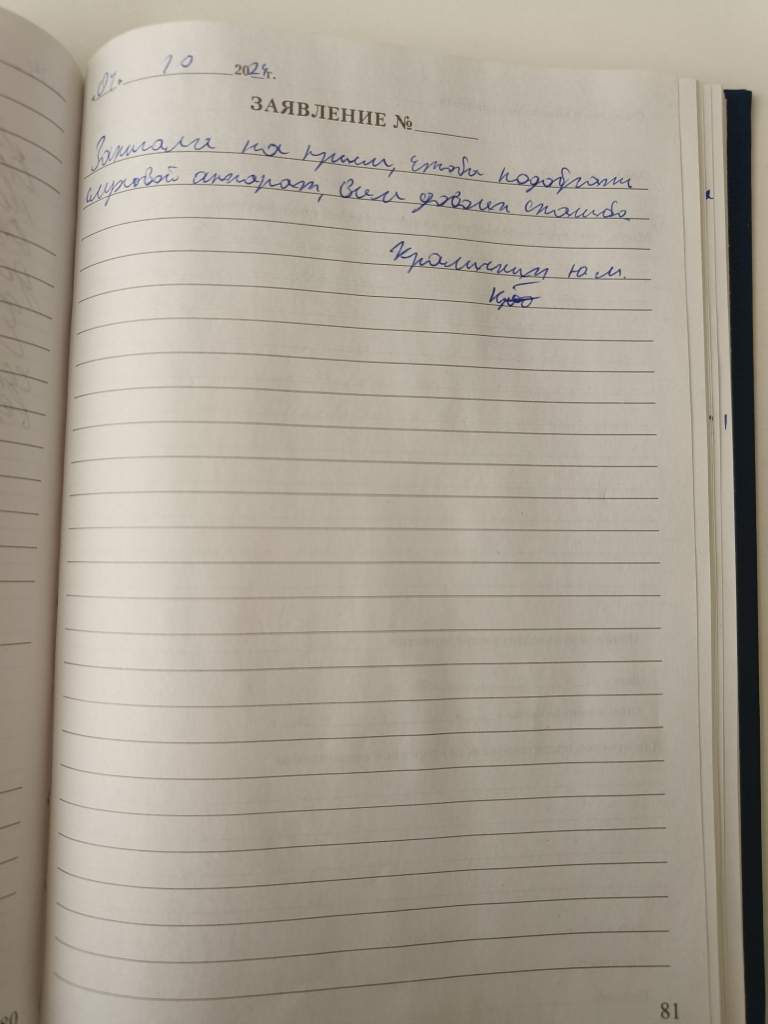 01. 10 2024г.
ЗАЯВЛЕНИЕ №
Записался на прием, чтобы подобрать
слуховой аппарат, всем доволен спасибо
Ю М.
81